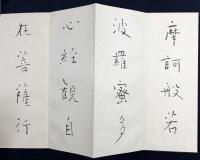 摩訶般若
波羅蜜多
心経観自
在菩薩行